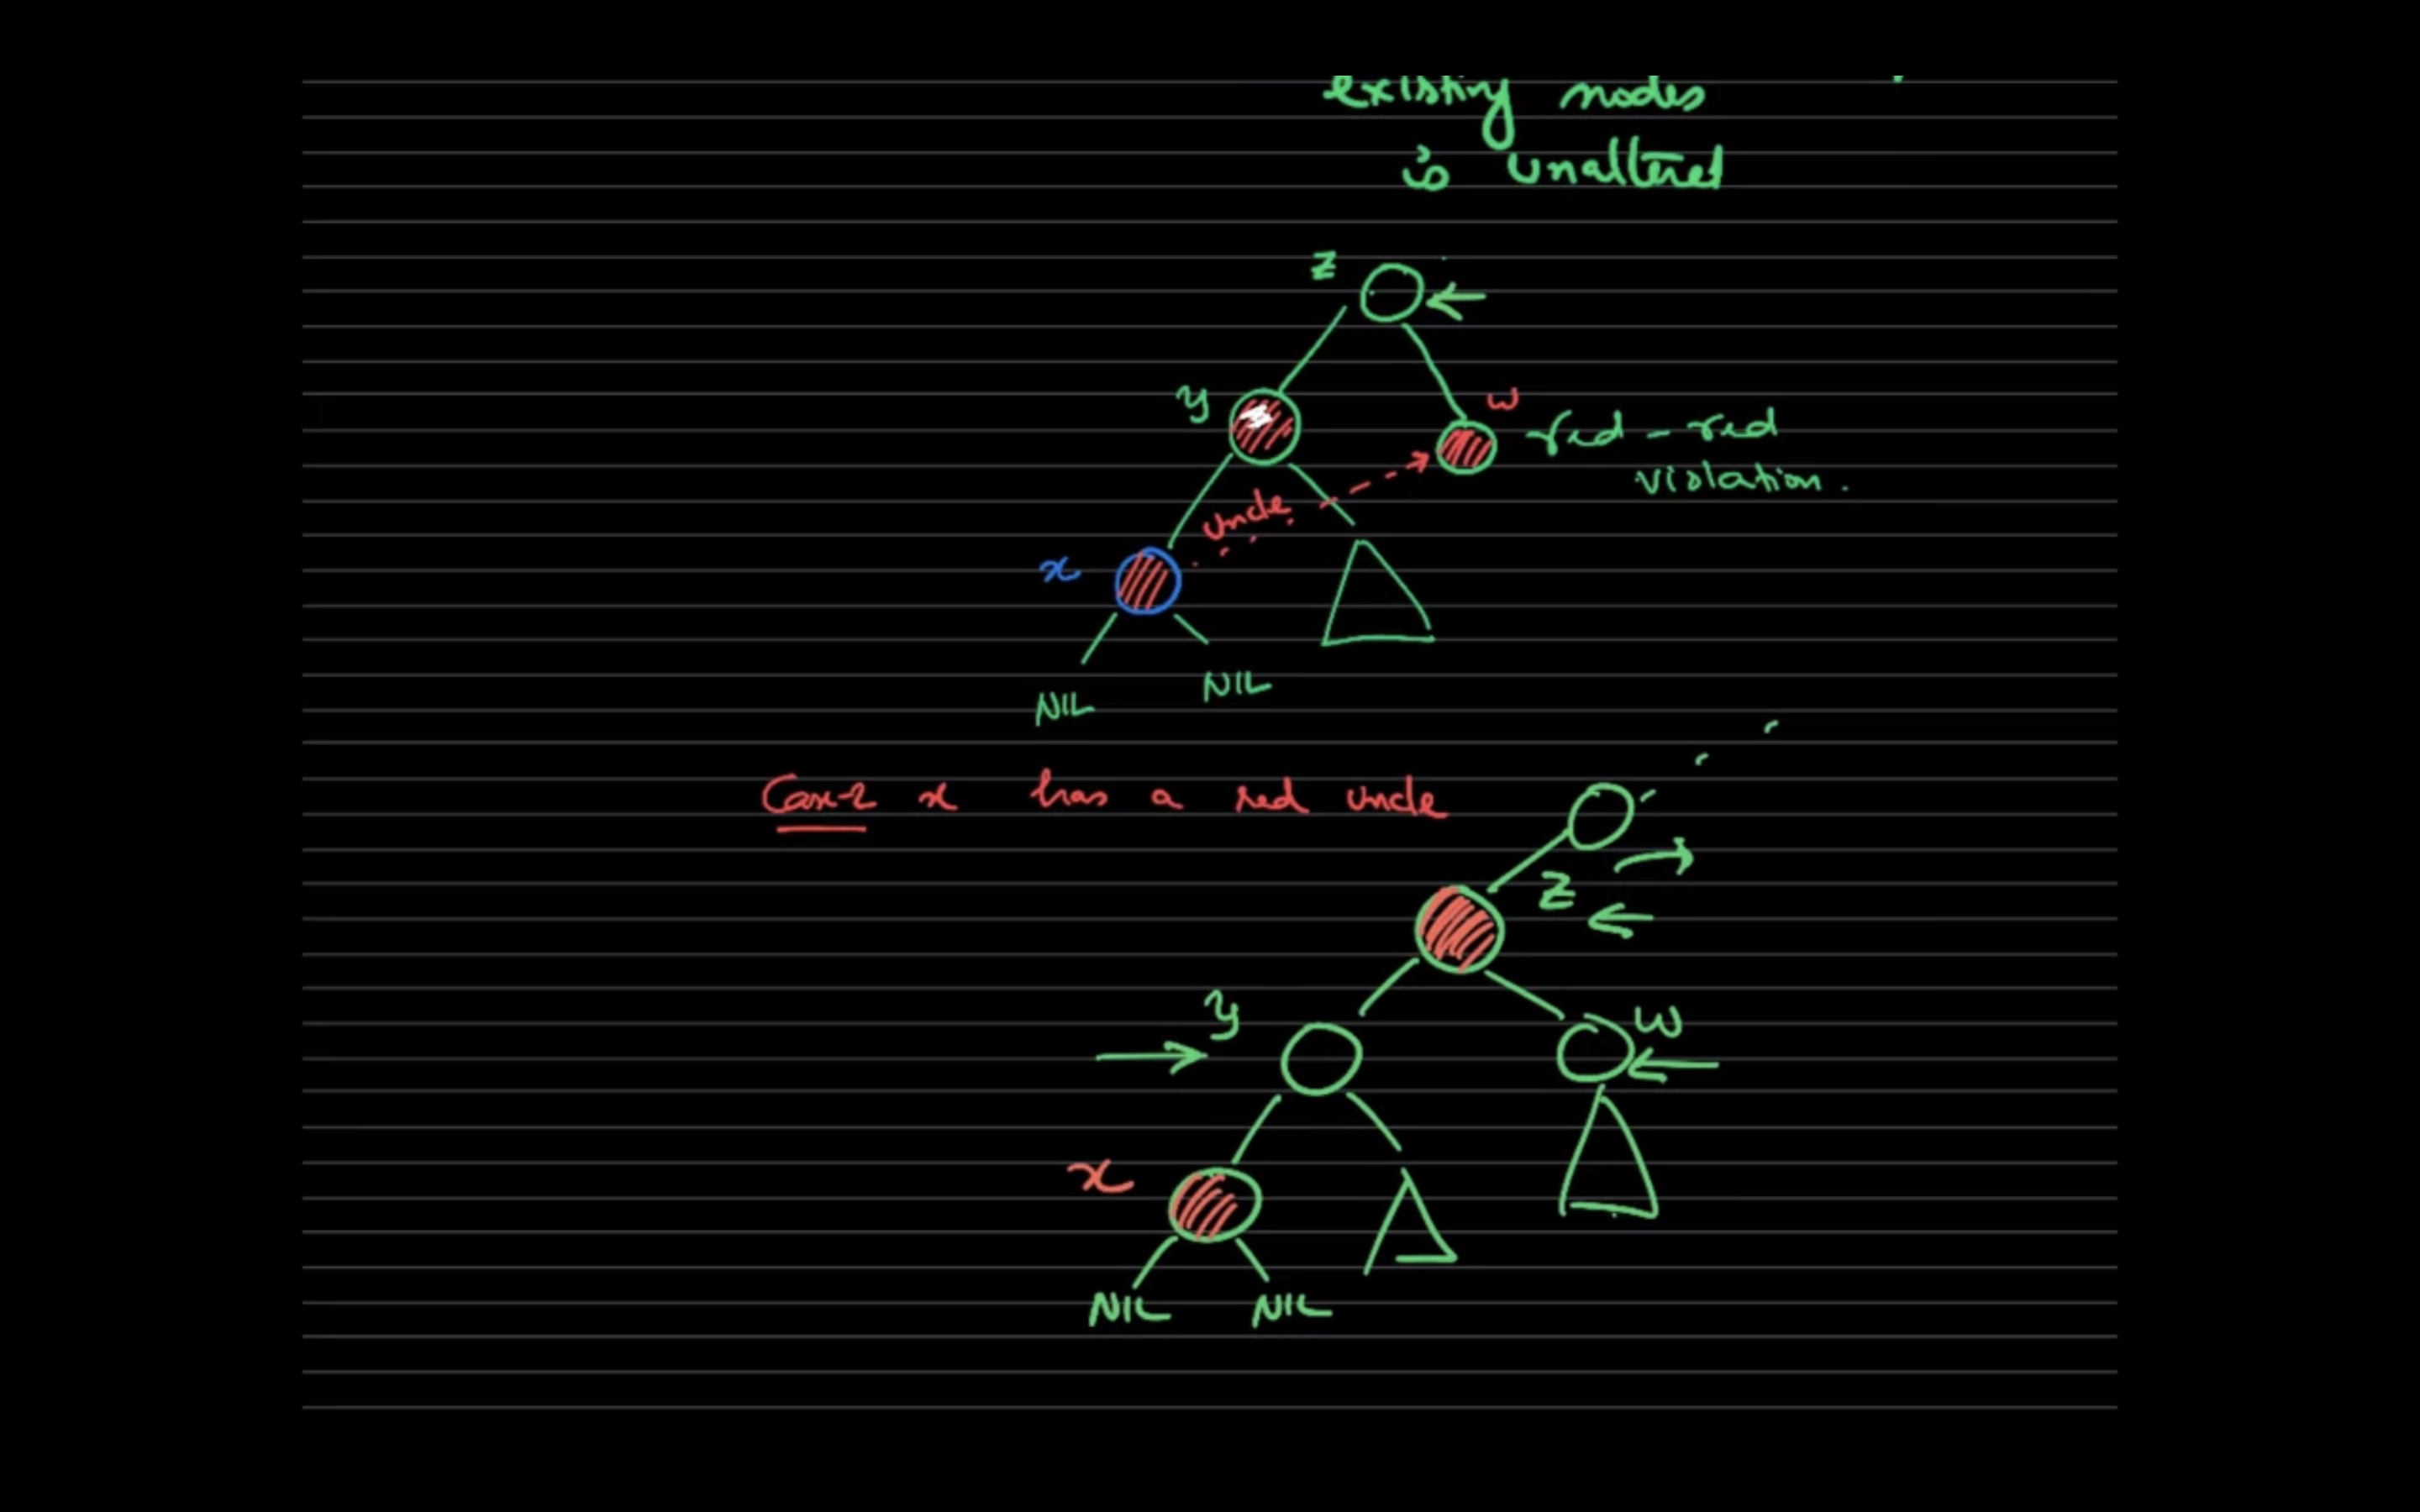 existing nodes
is unaltered
z
y
w
red - red
violation.
uncle
x
NIL
NIL
Case-2 x has a red uncle
z
y
w
x
NIL NIL